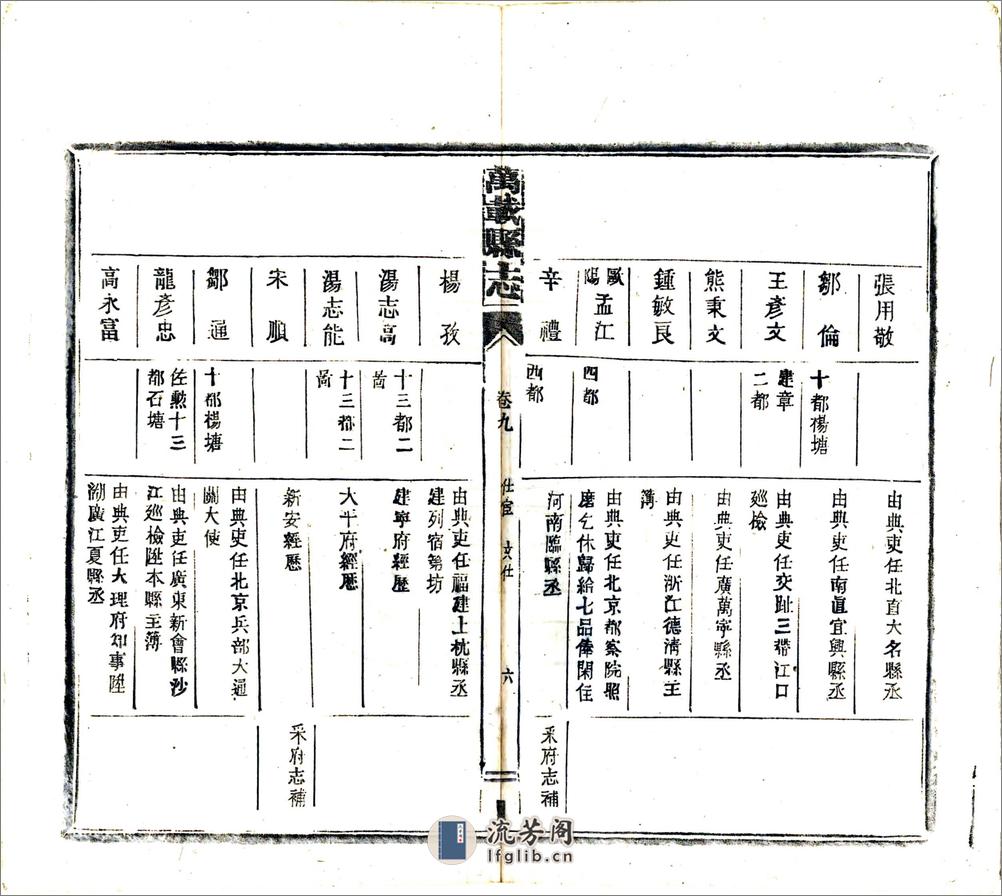 張用敬
由典吏任北直大名縣丞
鄒倫
十都楊塘
由典吏任南直宜興縣丞
王彥文
建章
二都
由典吏任交趾三帶江口
巡檢
熊秉文
由典吏任廣萬寧縣丞
鍾敏良
由典吏任浙江德淸縣主
簿
歐陽孟江
四都
由典吏任北京都察院照
磨乞休歸給七品俸閑住
辛禮
四都
河南臨縣丞
采府志補
萬載縣志
卷九
仕宦
文仕
六
楊孜
由典吏任福建上杭縣丞
建列宿第坊
湯志高
十三都二
啚
建寧府經歷
湯志能
十三都二
啚
大平府經歷
宋順
新安經歷
采府志補
鄒通
十都楊塘
由典吏任北京兵部大通
關大使
龍彥忠
佐勲十三
都石塘
由典吏任廣東新會縣沙
江巡檢陞本縣主簿
高永富
由典吏任大理府知事陞
湖廣江夏縣丞
流芳阁
lfglib.cn